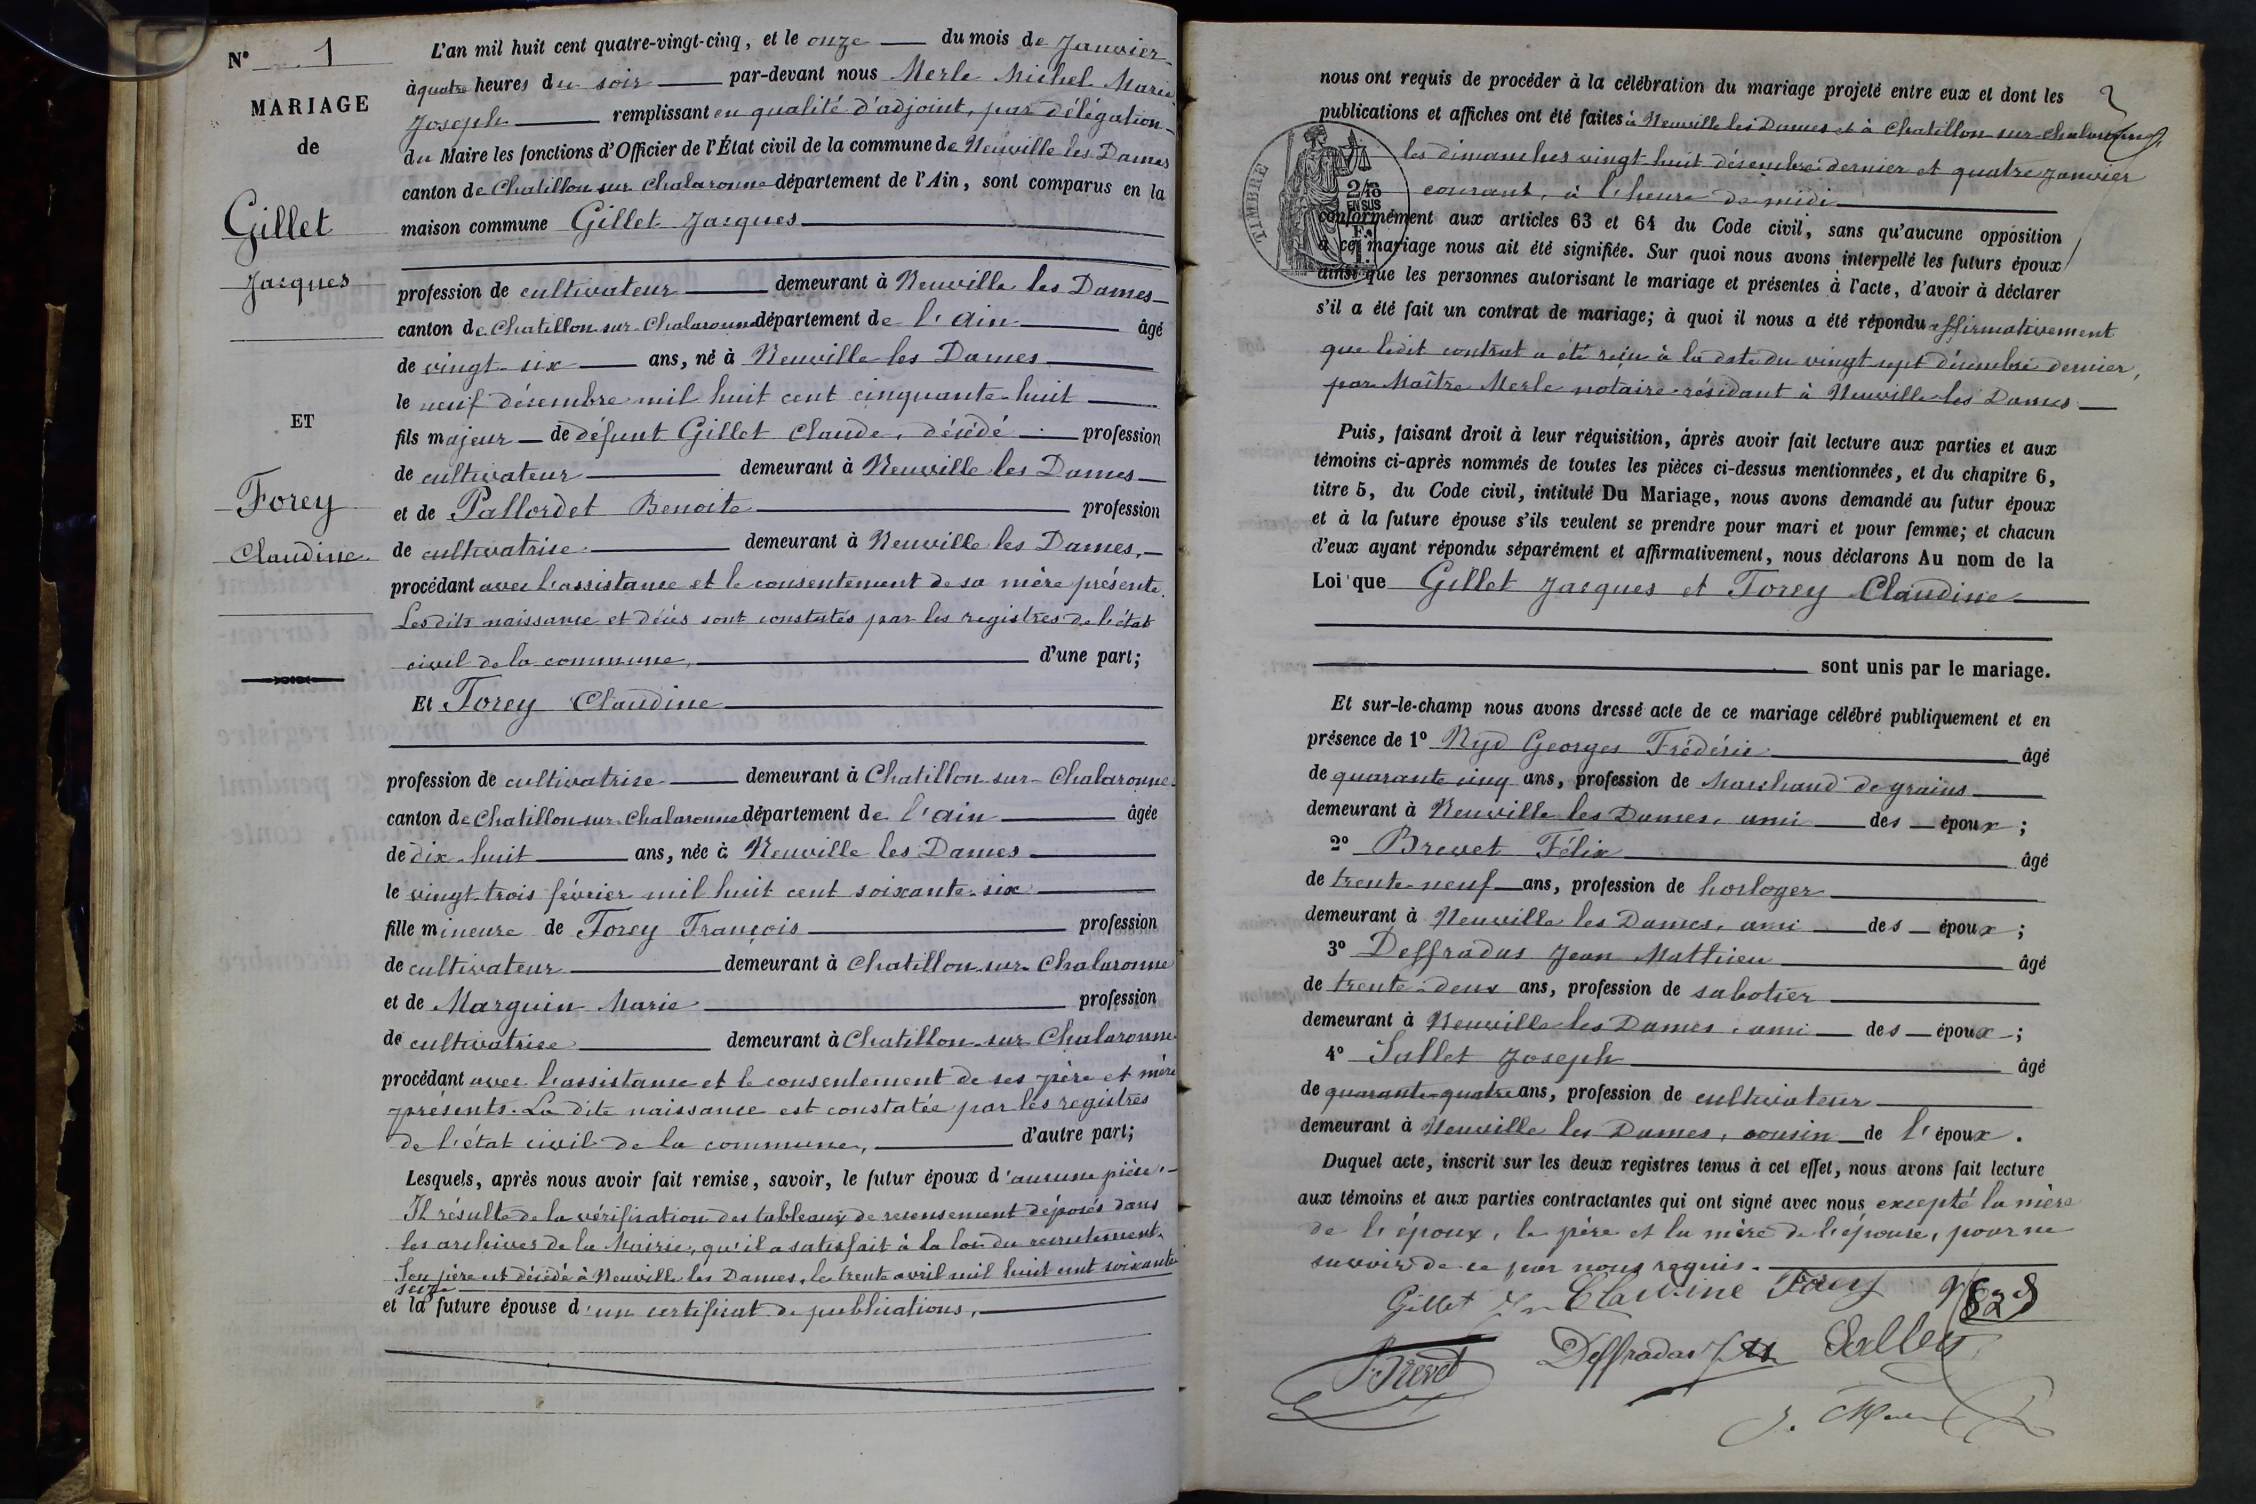 N° 1
MARIAGE
de
Gillet
Jacques
ET
Forey
Claudine
L'an mil huit cent quatre-vingt-cinq, et le onze du mois de Janvier
à quatre heures du soir par-devant nous Merle Michel Marie
Joseph remplissant en qualité d'adjoint, par délégation
du Maire les fonctions d'Officier de l'État civil de la commune de Neuville les Dames
canton de Chatillon sur Chalaronne département de l'Ain, sont comparus en la
maison commune Gillet Jacques
profession de cultivateur demeurant à Neuville les Dames
canton de Chatillon-sur-Chalaronne département de l'Ain âgé
de vingt-six ans, né à Neuville les Dames
le neuf décembre mil huit cent cinquante-huit
fils majeur de défunt Gillet Claude, décédé profession
de cultivateur demeurant à Neuville les Dames
et de Pallordet Benoite profession
de cultivatrise demeurant à Neuville les Dames,
procédant avec l'assistance et le consentement de sa mère présente.
Lesdits naissance et décès sont constatés par les registres de l'état
civil de la commune, d'une part;
Et Forey Claudine
profession de cultivatrise demeurant à Chatillon-sur-Chalaronne
canton de Chatillon-sur-Chalaronne département de l'Ain âgée
de dix-huit ans, née à Neuville les Dames
le vingt-trois février mil huit cent soixante-six
fille mineure de Forey François profession
de cultivateur demeurant à Chatillon-sur-Chalaronne
et de Marguin Marie profession
de cultivatrise demeurant à Chatillon-sur-Chalaronne
procédant avec l'assistance et le consentement de ses père et mère
présents. La dite naissance est constatée par les registres
de l'état civil de la commune, d'autre part;
Lesquels, après nous avoir fait remise, savoir, le futur époux d'aucune pièce.
Il résulte de la vérification des tableaux de recensement déposés dans
les archives de la Mairie, qu'il a satisfait à la loi du recrutement.
Son père est décédé à Neuville les Dames, le trente avril mil huit cent soixante
seize
et la future épouse d'un certificat de publications,
nous ont requis de procéder à la célébration du mariage projeté entre eux et dont les
publications et affiches ont été faites à Neuville les Dames et à Chatillon sur Chalaronne
les dimanches vingt huit décembre dernier et quatre Janvier
courant, à l'heure de midi
TIMBRE
2/10
EN SUS
conformément aux articles 63 et 64 du Code civil, sans qu'aucune opposition
à ce mariage nous ait été signifiée. Sur quoi nous avons interpellé les futurs époux
ainsi que les personnes autorisant le mariage et présentes à l'acte, d'avoir à déclarer
s'il a été fait un contrat de mariage; à quoi il nous a été répondu affirmativement
que ledit contrat a été reçu à la date du vingt sept décembre dernier,
par Maître Merle notaire résidant à Neuville les Dames
Puis, faisant droit à leur réquisition, après avoir fait lecture aux parties et aux
témoins ci-après nommés de toutes les pièces ci-dessus mentionnées, et du chapitre 6,
titre 5, du Code civil, intitulé Du Mariage, nous avons demandé au futur époux
et à la future épouse s'ils veulent se prendre pour mari et pour femme; et chacun
d'eux ayant répondu séparément et affirmativement, nous déclarons Au nom de la
Loi que Gillet Jacques et Forey Claudine
sont unis par le mariage.
Et sur-le-champ nous avons dressé acte de ce mariage célébré publiquement et en
présence de 1° Nyd Georges Frédéric âgé
de quarante cinq ans, profession de Marchand de grains
demeurant à Neuville les Dames, ami des époux;
2° Brevet Félix âgé
de trente-neuf ans, profession de horloger
demeurant à Neuville les Dames, ami des époux;
3° Deffradas Jean Mathieu âgé
de trente-deux ans, profession de sabotier
demeurant à Neuville les Dames, ami des époux;
4° Sallet Joseph âgé
de quarante-quatre ans, profession de cultivateur
demeurant à Neuville les Dames, cousin de l'époux.
Duquel acte, inscrit sur les deux registres tenus à cet effet, nous avons fait lecture
aux témoins et aux parties contractantes qui ont signé avec nous excepté la mère
de l'époux, le père et la mère de l'épouse, pour ne
savoir de ce par nous requis.
Gillet Claudine Forey
Brevet Deffradas Sallet